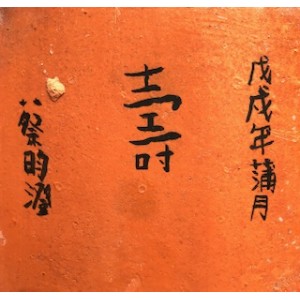 戊戌年蒲月
壽
蔡昀澄